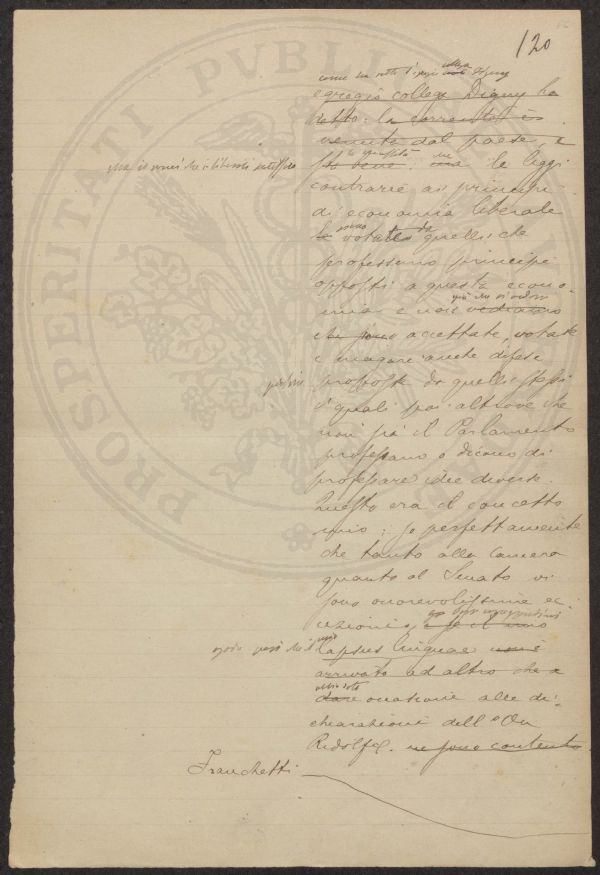 120
egregio collega Digny ha
detto: la corrente è
venuta dal paese e
sta bene: ma le leggi
contrarie ai principi
di economia liberale
sono votate da quelli che
professano principi
opposti a questa econo-
mia e noi vediamo
che sono accettate, votate
e magari anche difese
persino proposte da quelli stessi
i quali poi altrove che
non sia il Parlamento
professano o dicono di
professare idee diverse.
Questo era il concetto
mio; so perfettamente
che tanto alla Camera
quanto al Senato vi
sono onorevolissime ec-
cezioni, e se il mio
lapsus linguae non è
arrivato ad altro che a
dare occasione alle di-
chiarazioni dell'On
Ridolfi. ne sono contento.
Franchetti
PROSPERITATI PVBLI